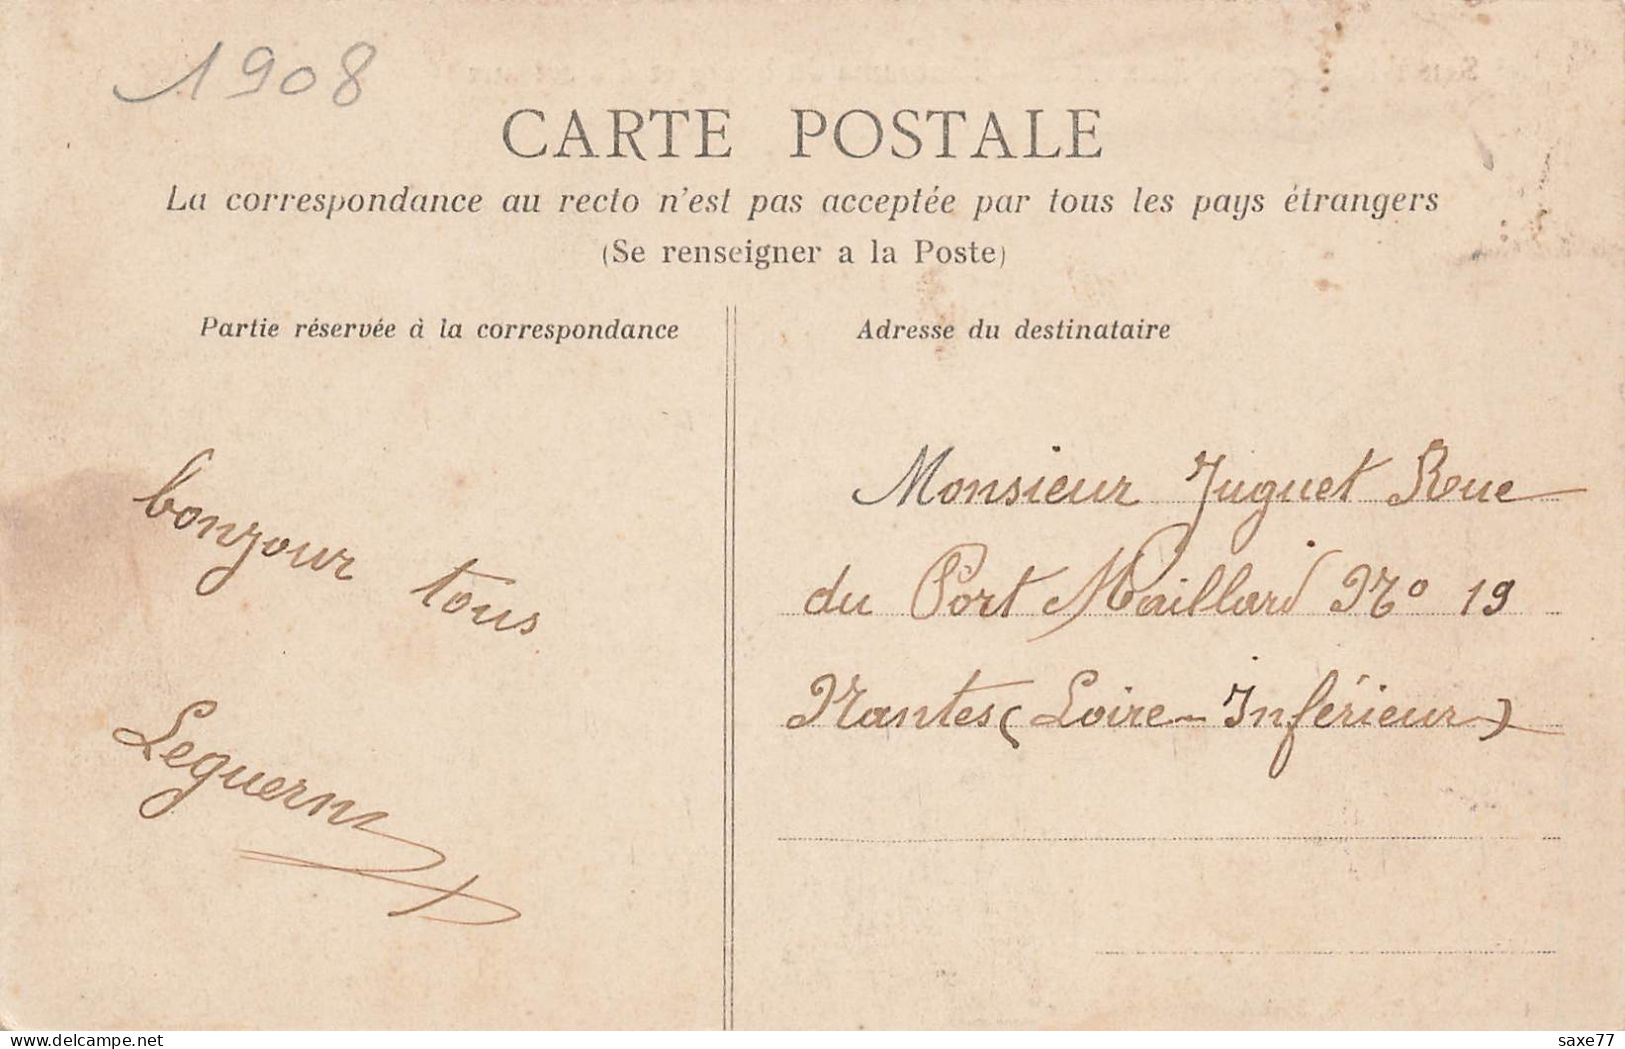 1908
CARTE POSTALE
La correspondance au recto n'est pas acceptée par tous les pays étrangers
(Se renseigner a la Poste)
Partie réservée à la correspondance
Adresse du destinataire
bonjour tous
Leguern
Monsieur Juguet Rue
du Port Maillard No 19
Nantes (Loire-Inférieur)
delcampe.net
saxe77